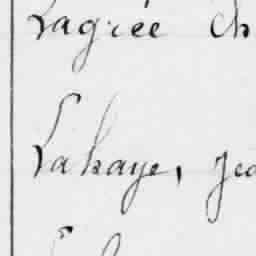 Lagrée Ch
Lahaye, Jea